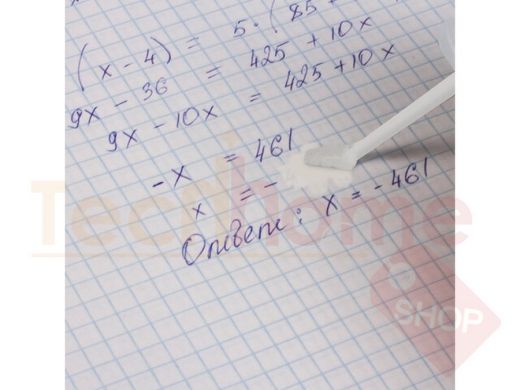 (x - 4) = 5 · (85 +
9x - 36 = 425 + 10x
9x - 10x = 425 + 10x
-x = 461
x = -
Ответ: x = -461
Tech Home
SHOP